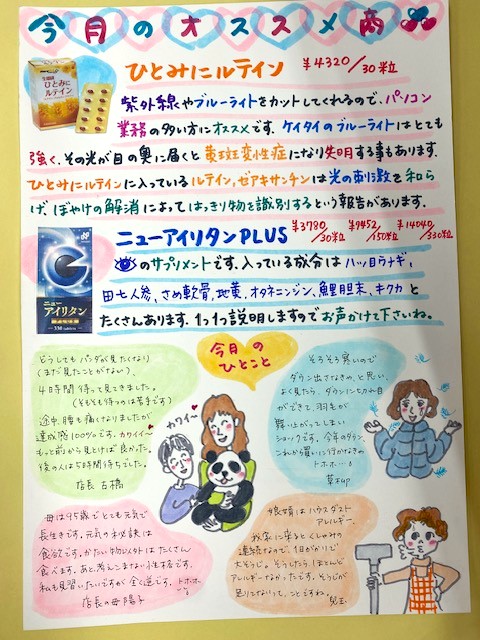 今月のオススメ商
ひとみにルテイン ¥4320/30粒
ひとみに
ルテイン
紫外線やブルーライトをカットしてくれるので、パソコン
業務の多い方にオススメです。ケイタイのブルーライトはとても
強く、その光が目の奥に届くと黄斑変性症になり失明する事もあります。
ひとみにルテインに入っているルテイン,ゼアキサンチンは光の刺激を和ら
げ、ぼやけの解消によってはっきり物を識別するという報告があります。
ニューアイリタンPLUS ¥3780/30粒 ¥9452/150粒 ¥14040/330粒
ニュー
アイリタン
のサプリメントです。入っている成分はハツ目ウナギ,
田七人参,さめ軟骨,地黄,オタネニンジン,鯉胆末,キクカと
たくさんあります。1つ1つ説明しますのでお声かけて下さいね。
今月の
ひとこと
どうしてもパンダが見たくなり
(まだ見たことがない)、
4時間待って見てきました。
(そもそも待つのは苦手です)
途中、腰も痛くなりましたが
達成感100%です。カワイイ〜
もっと前から見とけば良かった。
後の人は5時間待ちでした。
店長 古橋
カワイイ〜
そろそろ寒いので
ダウン出さなきゃ、と思い、
よく見たら、ダウンに穴
ができて、羽毛が
舞い上がってしまい
ショックです。今年のダウン、
これから買いに行かなきゃ
トホホ…
草加
母は95歳でとても元気で
長生きです。元気の秘訣は
食欲です。かたい物以外はたくさん
食べます。あと、気にしこまない性格です。
私も見習いたいですが、全く逆です。トホホ
店長の母 陽子
娘婿はハウスダスト
アレルギー。
我家に来るとくしゃみの
連続なので、1日がかりで
大そうじ。そうしたら、ほとんど
アレルギーなかったです。そうじが
足りないって、ことですね。
児玉